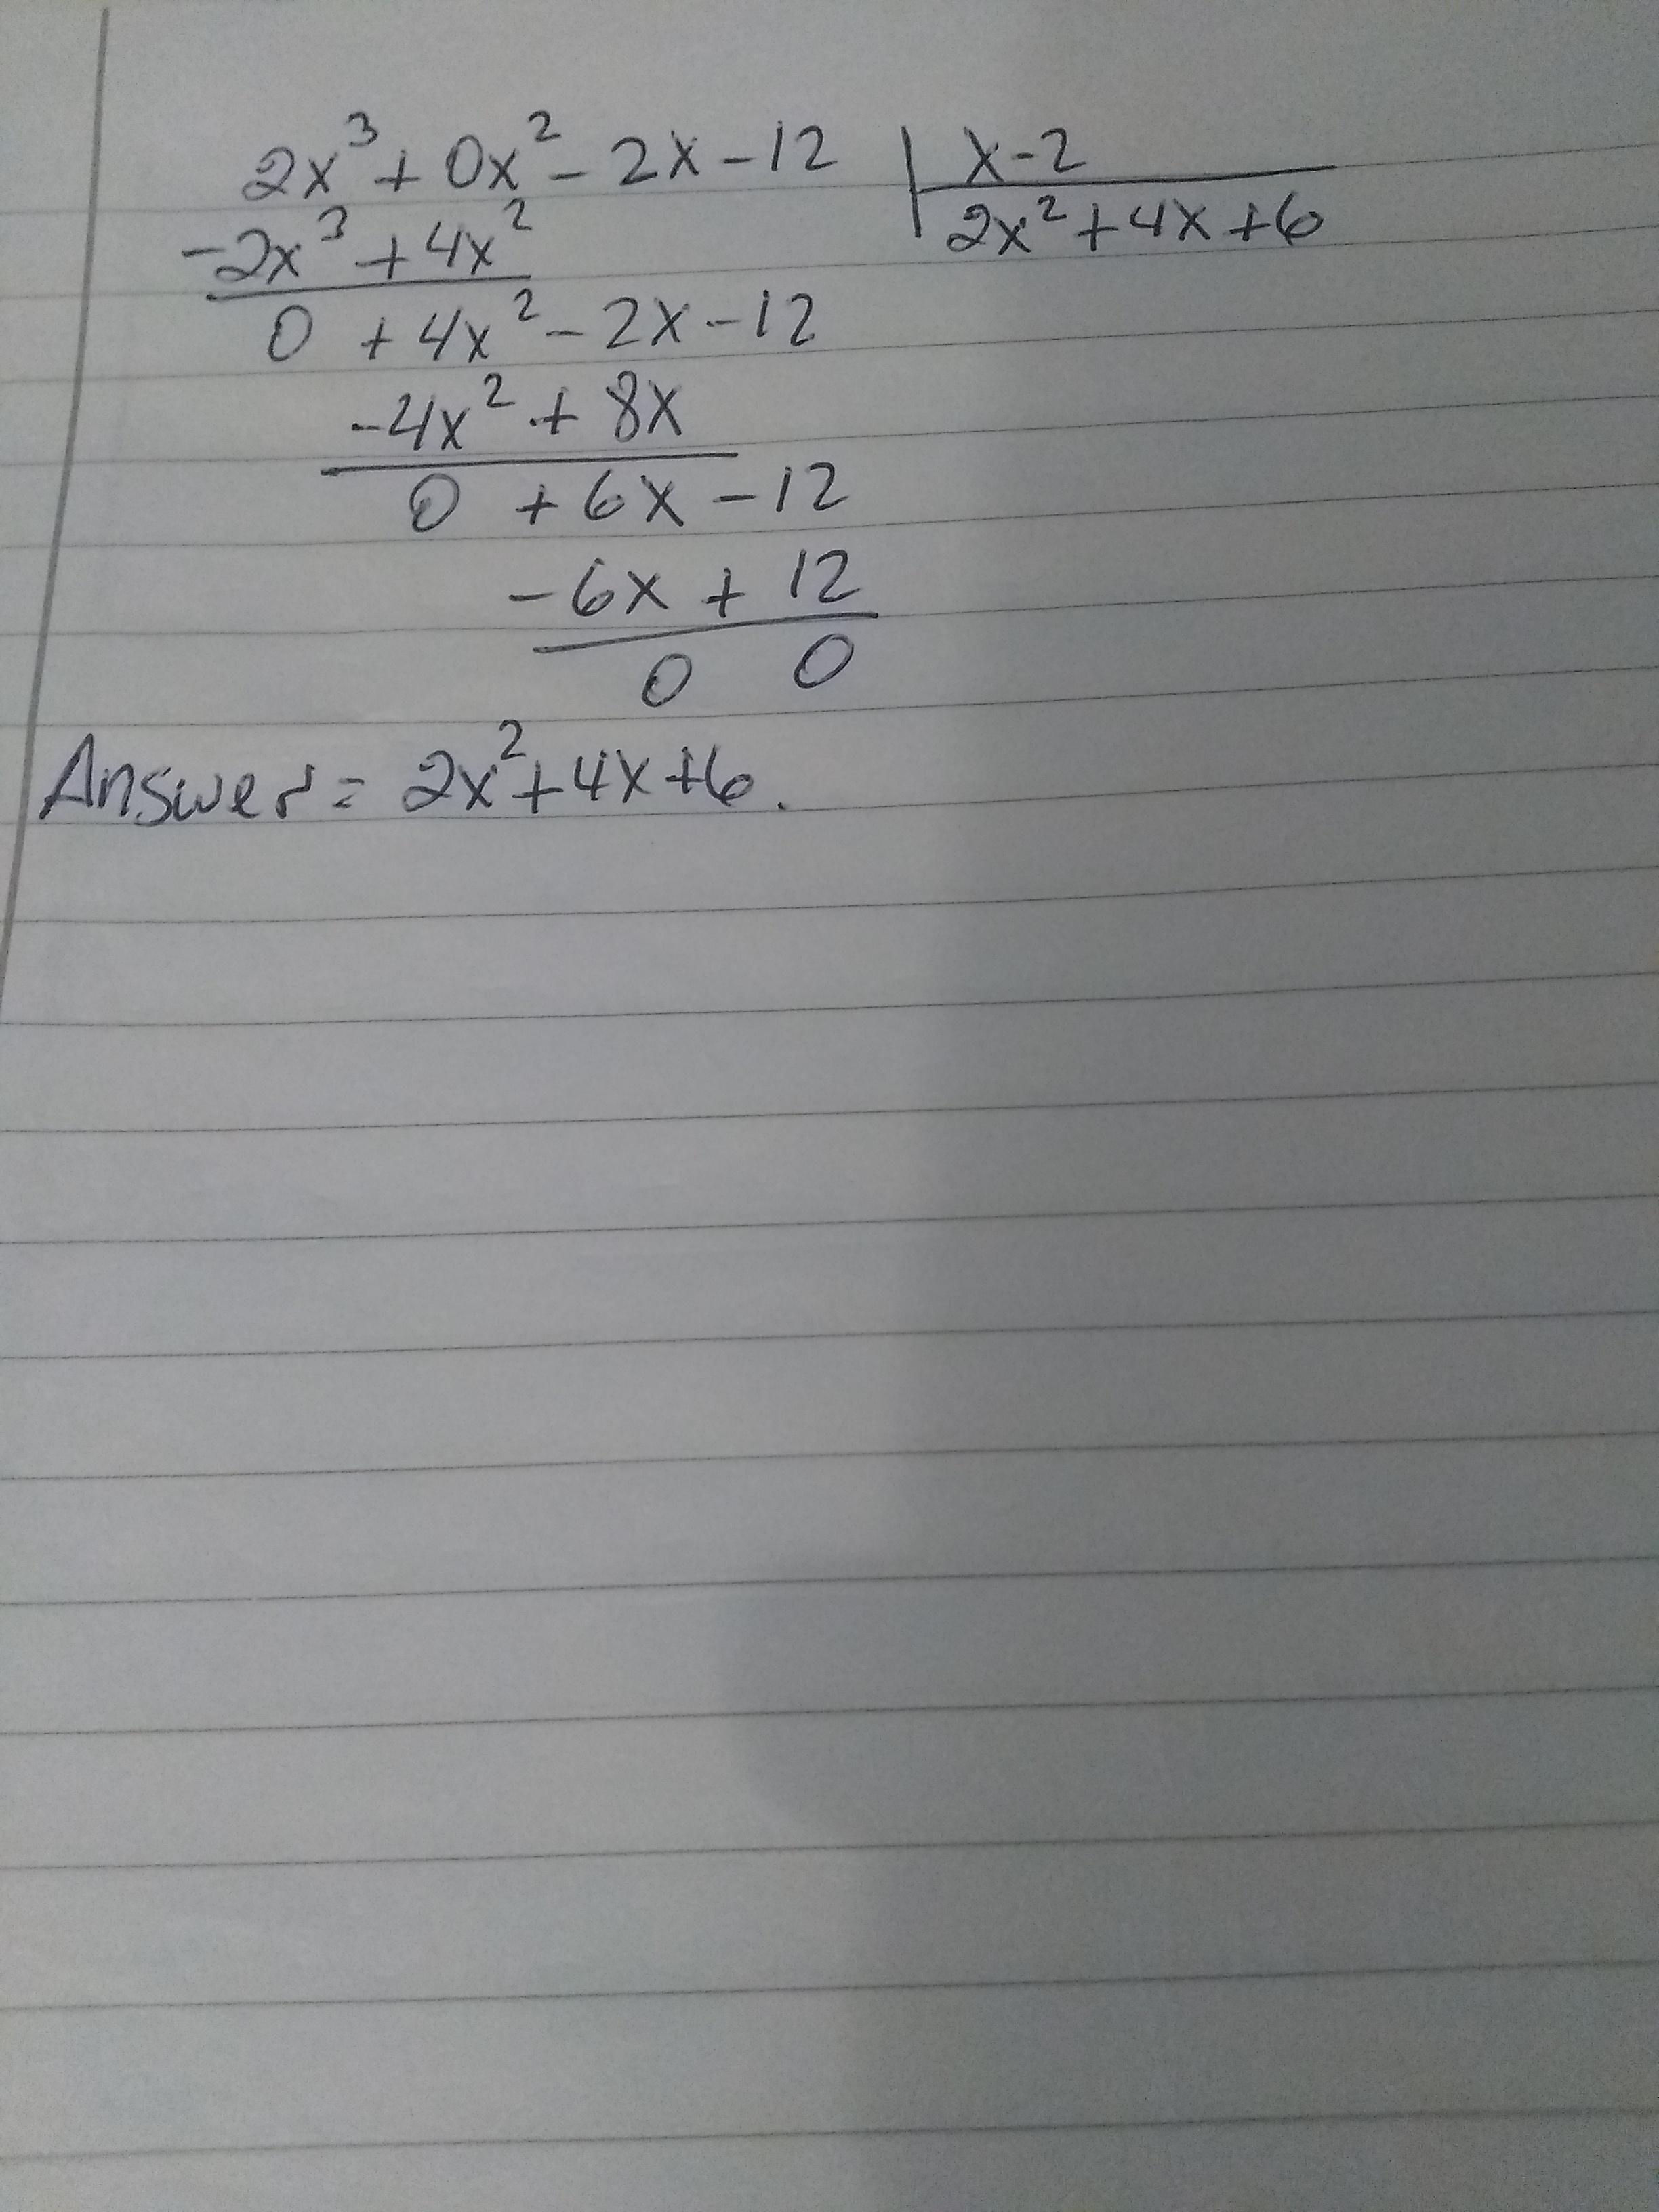 2x³ + 0x² - 2x - 12 | x - 2
-2x³ + 4x² 2x² + 4x + 6
0 + 4x² - 2x - 12
-4x² + 8x
0 + 6x - 12
-6x + 12
0 0
Answer = 2x² + 4x + 6.